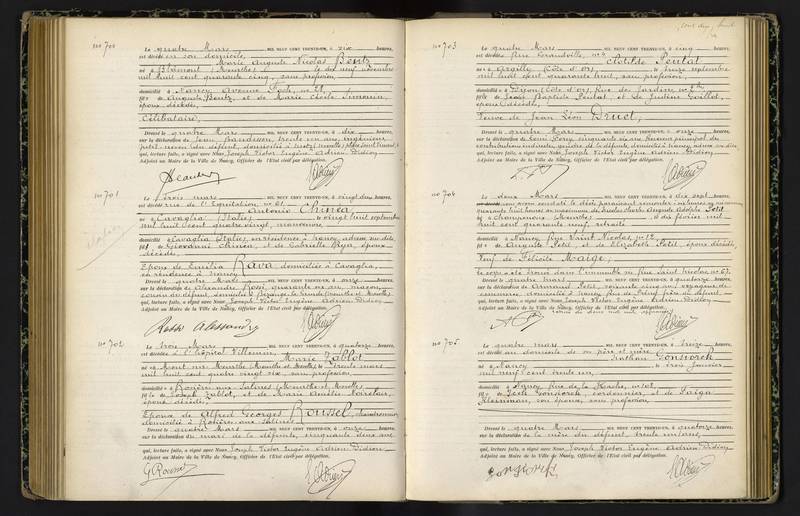 no 700
Le quatre Mars MIL NEUF CENT TRENTE-UN, à dix heures,
est décédé en son domicile,
Marie Auguste Nicolas Bentz
né à Blémont (Meurthe), le dix neuf novembre
mil huit cent quarante cinq, sans profession,
domicilié à Nancy, Avenue Foch, no
fils de Auguste Bentz, et de Marie Cécile Simonin,
époux décédés,
Célibataire,
Devant le quatre Mars MIL NEUF CENT TRENTE-UN, à dix heures,
sur la déclaration de trente un ans, ingénieur
petit neveu du défunt, domicilié à
qui, lecture faite, a signé avec Nous Joseph Victor Eugène Adrien Didion
Adjoint au Maire de la Ville de Nancy, Officier de l'Etat civil par délégation.
no 701
Le trois mars MIL NEUF CENT TRENTE-UN, à vingt deux heures,
est décédé rue de l'Equitation, no 61
Antonio Chinea
né à Cavaglia (Italie), le vingt huit septembre
mil huit cent quatre vingt manœuvre
domicilié à Cavaglia (Italie), en résidence à Nancy, adresse sus dite,
fils de Giovanni Chinea, et de Gabrielle époux
décédés,
Epoux de Emilia Rava domiciliée à Cavaglia,
en résidence à Nancy
Devant le quatre Mars MIL NEUF CENT TRENTE-UN, à onze heures,
sur la déclaration de Alexandre Rosso, quarante six ans, maçon,
cousin du défunt, domicilié à
qui, lecture faite, a signé avec Nous Joseph Victor Eugène Adrien Didion
Adjoint au Maire de la Ville de Nancy, Officier de l'Etat civil par délégation.
Rosso Alessandro
no 702
Le trois Mars MIL NEUF CENT TRENTE-UN, à quatorze heures,
est décédée à l'hôpital Villemin, Marie Zablot
née à Mont sur Meurthe (Meurthe et Moselle), le trente mars
mil huit cent quatre vingt six, sans profession
domiciliée à Rosières aux Salines (Meurthe et Moselle)
fille de Joseph Zablot, et de Marie Amélie Noirclair,
époux décédés,
Epouse de Alfred Georges Roussel,
domicilié à Rosières aux Salines
Devant le quatre Mars MIL NEUF CENT TRENTE-UN, à onze heures,
sur la déclaration du mari de la défunte, cinquante deux ans
qui, lecture faite, a signé avec Nous Joseph Victor Eugène Adrien Didion
Adjoint au Maire de la Ville de Nancy, Officier de l'Etat civil par délégation.
G Roussel
no 703
Le quatre Mars MIL NEUF CENT TRENTE-UN, à cinq heures,
est décédée Rue Grandville, no 4
Clotilde Pentat
née à Arcilly (Côte d'or), le treize septembre
mil huit cent quarante huit, sans profession,
domiciliée à Dijon (Côte d'or), Rue des Jardins, no
fille de Jean Baptiste Pentat, et de Justine Baillot,
époux décédés,
Veuve de Jean Léon Druet,
Devant le quatre Mars MIL NEUF CENT TRENTE-UN, à onze heures,
sur la déclaration de cinquante six ans, Receveur principal des
contributions indirectes, gendre de la défunte, domicilié à Nancy, adresse sus dite
qui, lecture faite, a signé avec Nous Joseph Victor Eugène Adrien Didion
Adjoint au Maire de la Ville de Nancy, Officier de l'Etat civil par délégation.
no 704
Le deux Mars MIL NEUF CENT TRENTE-UN, à dix sept heures,
avons constaté le décès paraissant remonter à
quarante huit heures au maximum de Nicolas Charles Auguste Adolphe Petit
né à Champenoux (Meurthe), le dix février mil
huit cent quarante neuf, retraité
domicilié à Nancy, Rue Saint Nicolas, no 12
fils de Auguste Petit, et de Elizabeth Petit, époux décédés,
Veuf de Félicité Maige;
le corps a été trouvé dans l'immeuble sis Rue Saint Nicolas, no 67.
Devant le quatre Mars MIL NEUF CENT TRENTE-UN, à quatorze heures,
sur la déclaration de Armand Petit, soixante cinq ans, voyageur de
commerce, domicilié à Nancy frère du défunt
qui, lecture faite, a signé avec Nous Joseph Victor Eugène Adrien Didion
Adjoint au Maire de la Ville de Nancy, Officier de l'Etat civil par délégation.
no 705
Le quatre mars MIL NEUF CENT TRENTE-UN, à treize heures,
est décédé au domicile de ses père et mère
Nathan Gonsiorek
né à Nancy le trois Janvier
mil neuf cent trente un,
domicilié à Nancy, Rue de la Hache, no 101,
fils de Gonsiorek, cordonnier, et de Faiga
Kleinman, son épouse, sans profession,
Devant le quatre Mars MIL NEUF CENT TRENTE-UN, à quatorze heures,
sur la déclaration de la mère du défunt, trente un ans,
qui, lecture faite, a signé avec Nous Joseph Victor Eugène Adrien Didion
Adjoint au Maire de la Ville de Nancy, Officier de l'Etat civil par délégation.